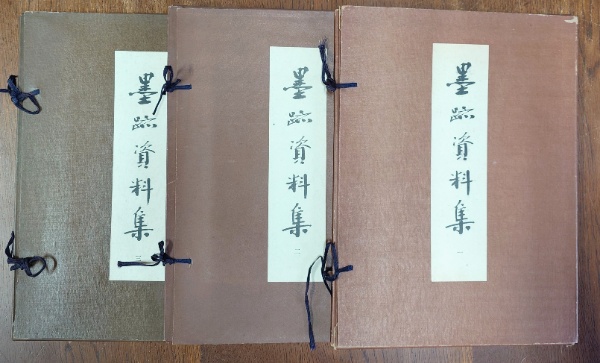 墨跡資料集 一
墨跡資料集 二
墨跡資料集 三